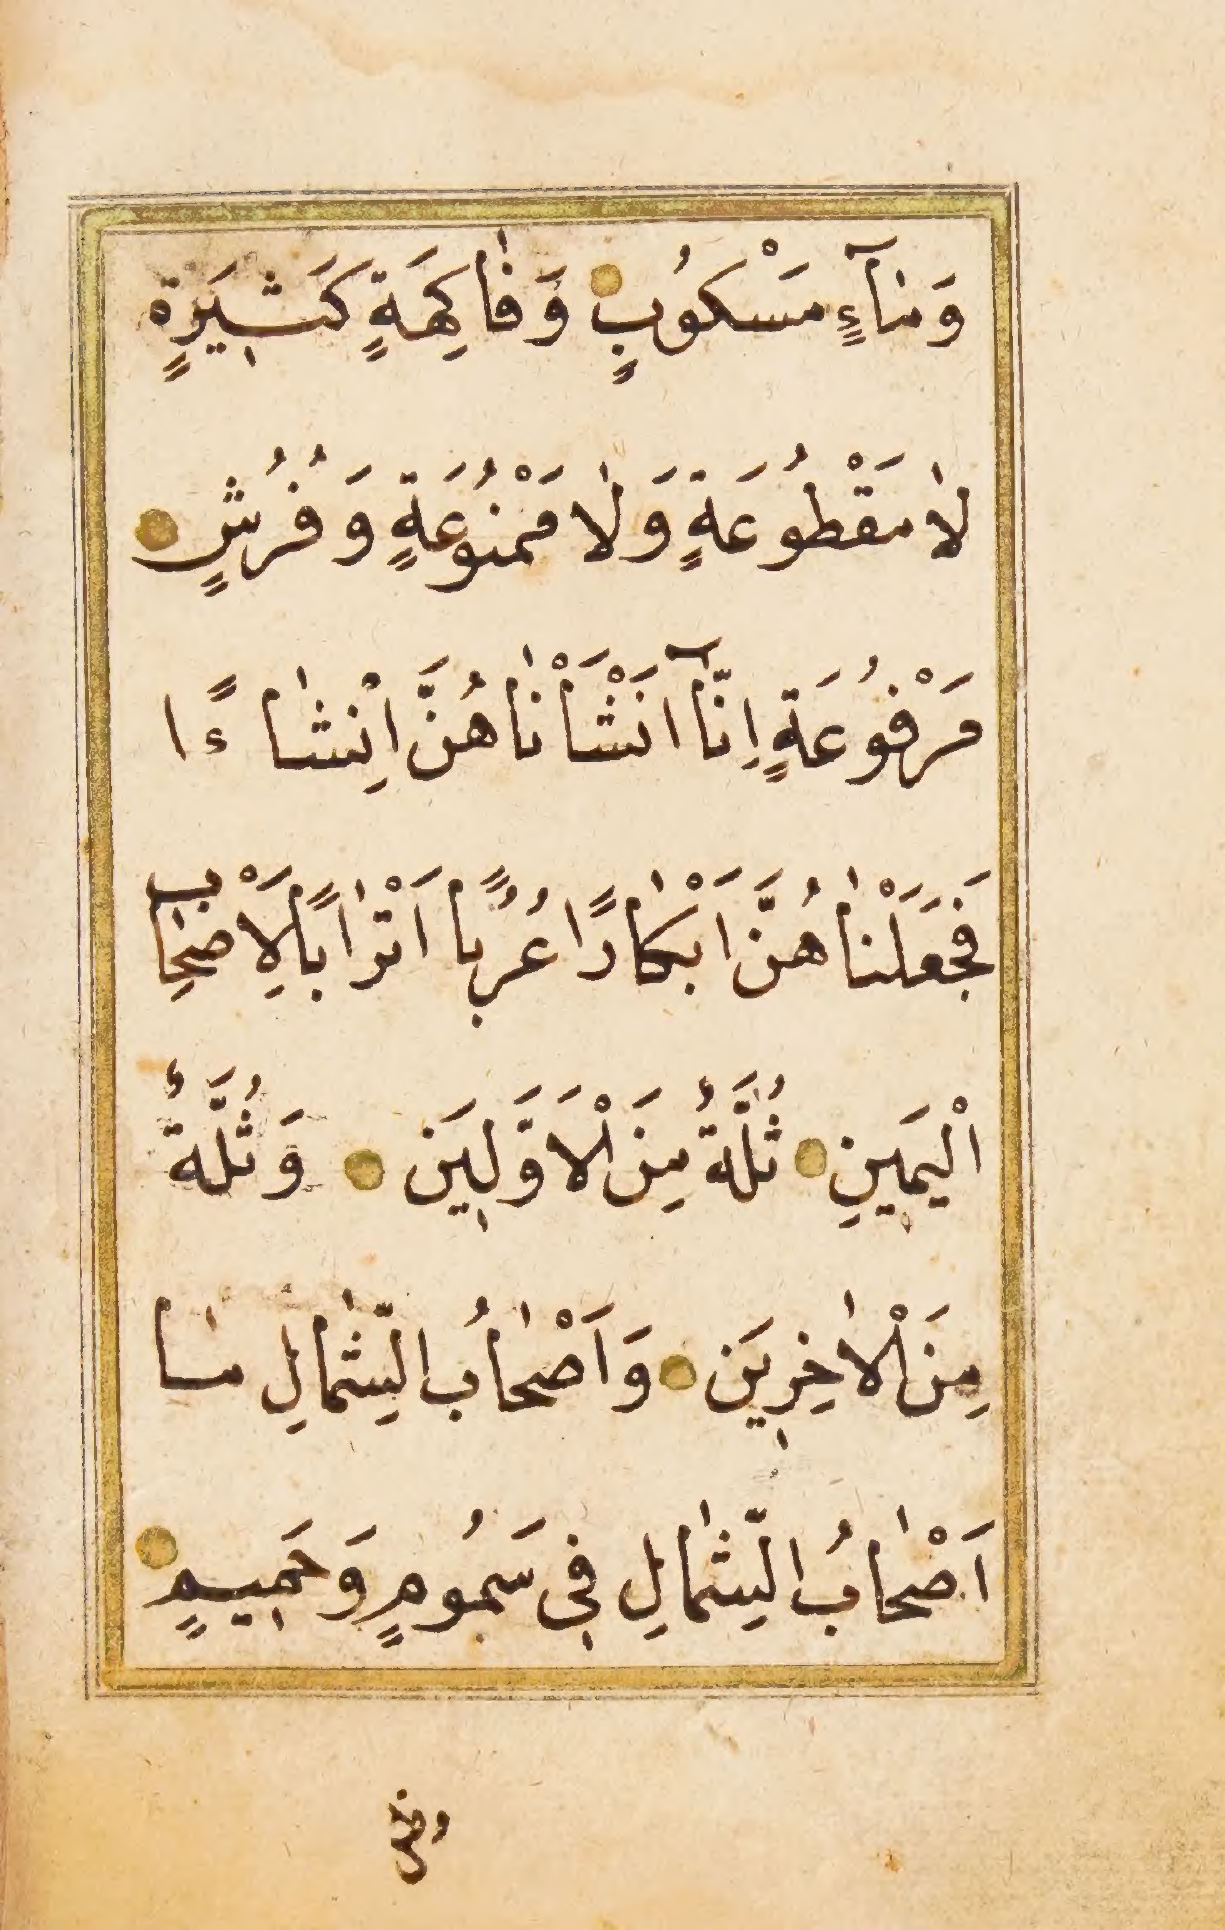 وَمَآءٍ مَسْكُوبٍ وَفَاكِهَةٍ كَثِيرَةٍ
لَا مَقْطُوعَةٍ وَلَا مَمْنُوعَةٍ وَفُرُشٍ
مَرْفُوعَةٍ اِنَّآ اَنْشَأْنَاهُنَّ اِنْشَاءً
فَجَعَلْنَاهُنَّ اَبْكَارًا عُرُبًا اَتْرَابًا لِاَصْحَابِ
الْيَمِينِ ثُلَّةٌ مِنَ الْاَوَّلِينَ وَثُلَّةٌ
مِنَ الْاٰخِرِينَ وَاَصْحَابُ الشِّمَالِ مَا
اَصْحَابُ الشِّمَالِ فِى سَمُومٍ وَحَمِيمٍ
وظل